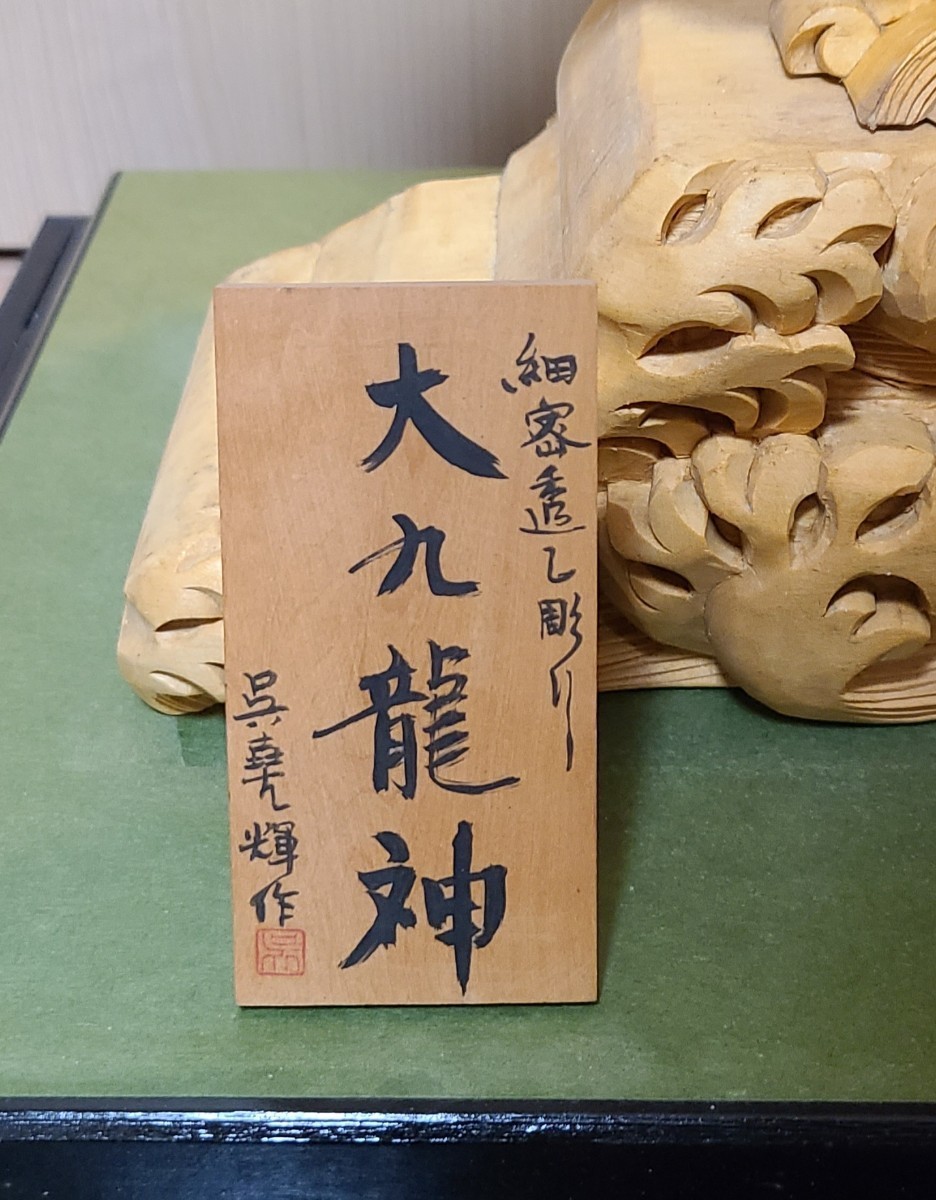 細密透し彫り
大九龍神
呉堯輝作
呉